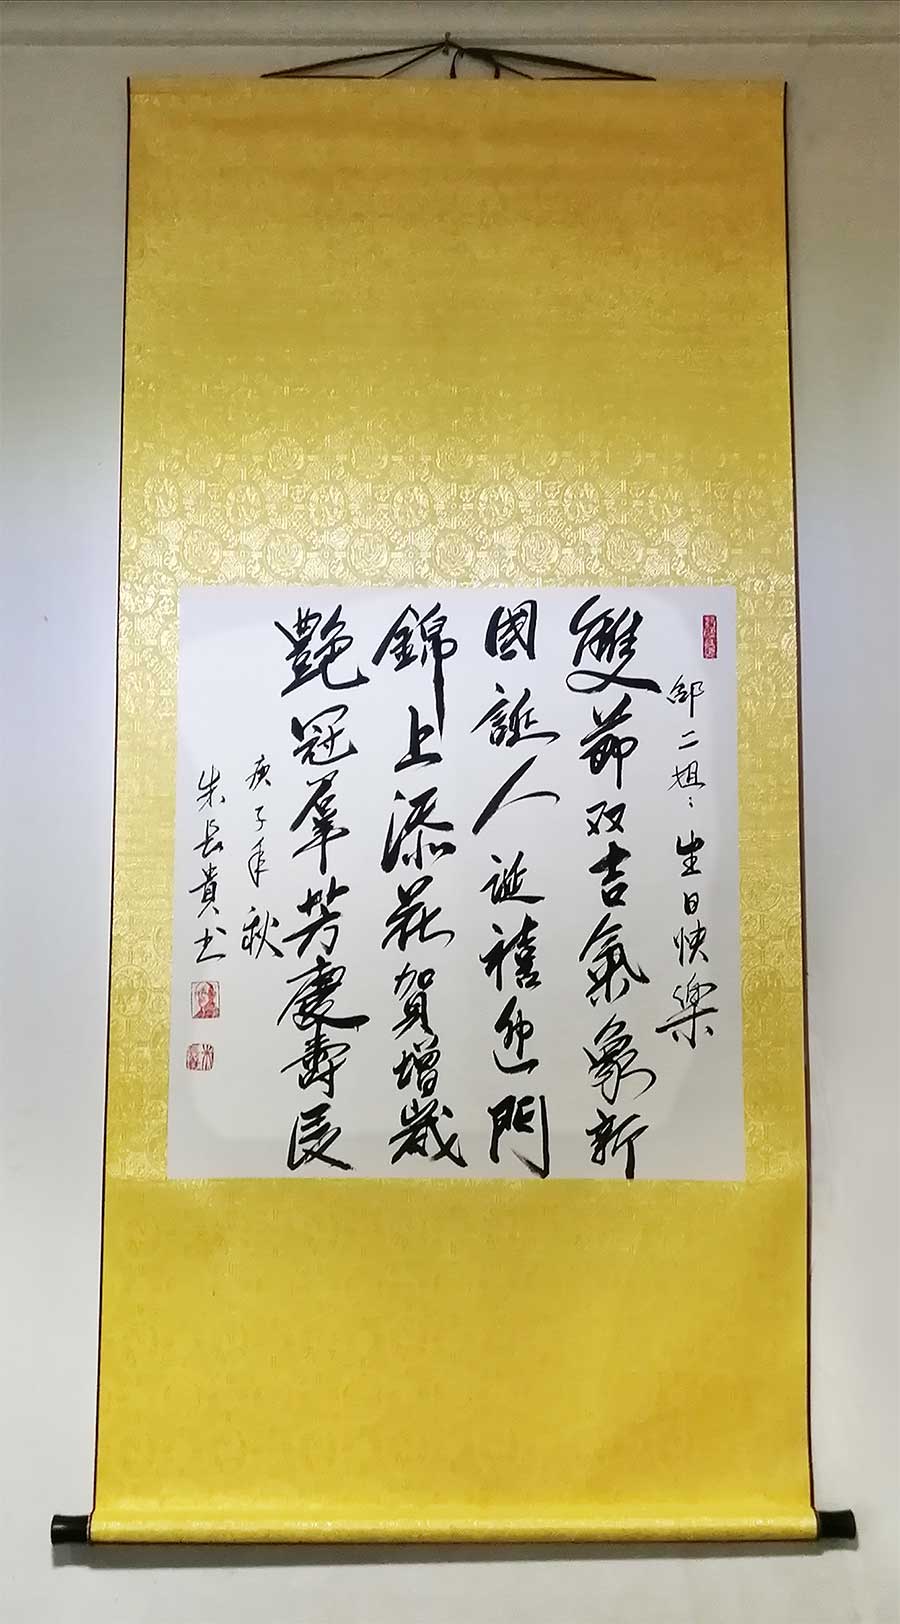 邹二姐：生日快樂
雙節双吉氣象新
國誕人誕禧迎門
錦上添花賀增歲
艷冠羣芳慶壽長
庚子年秋
朱長貴书